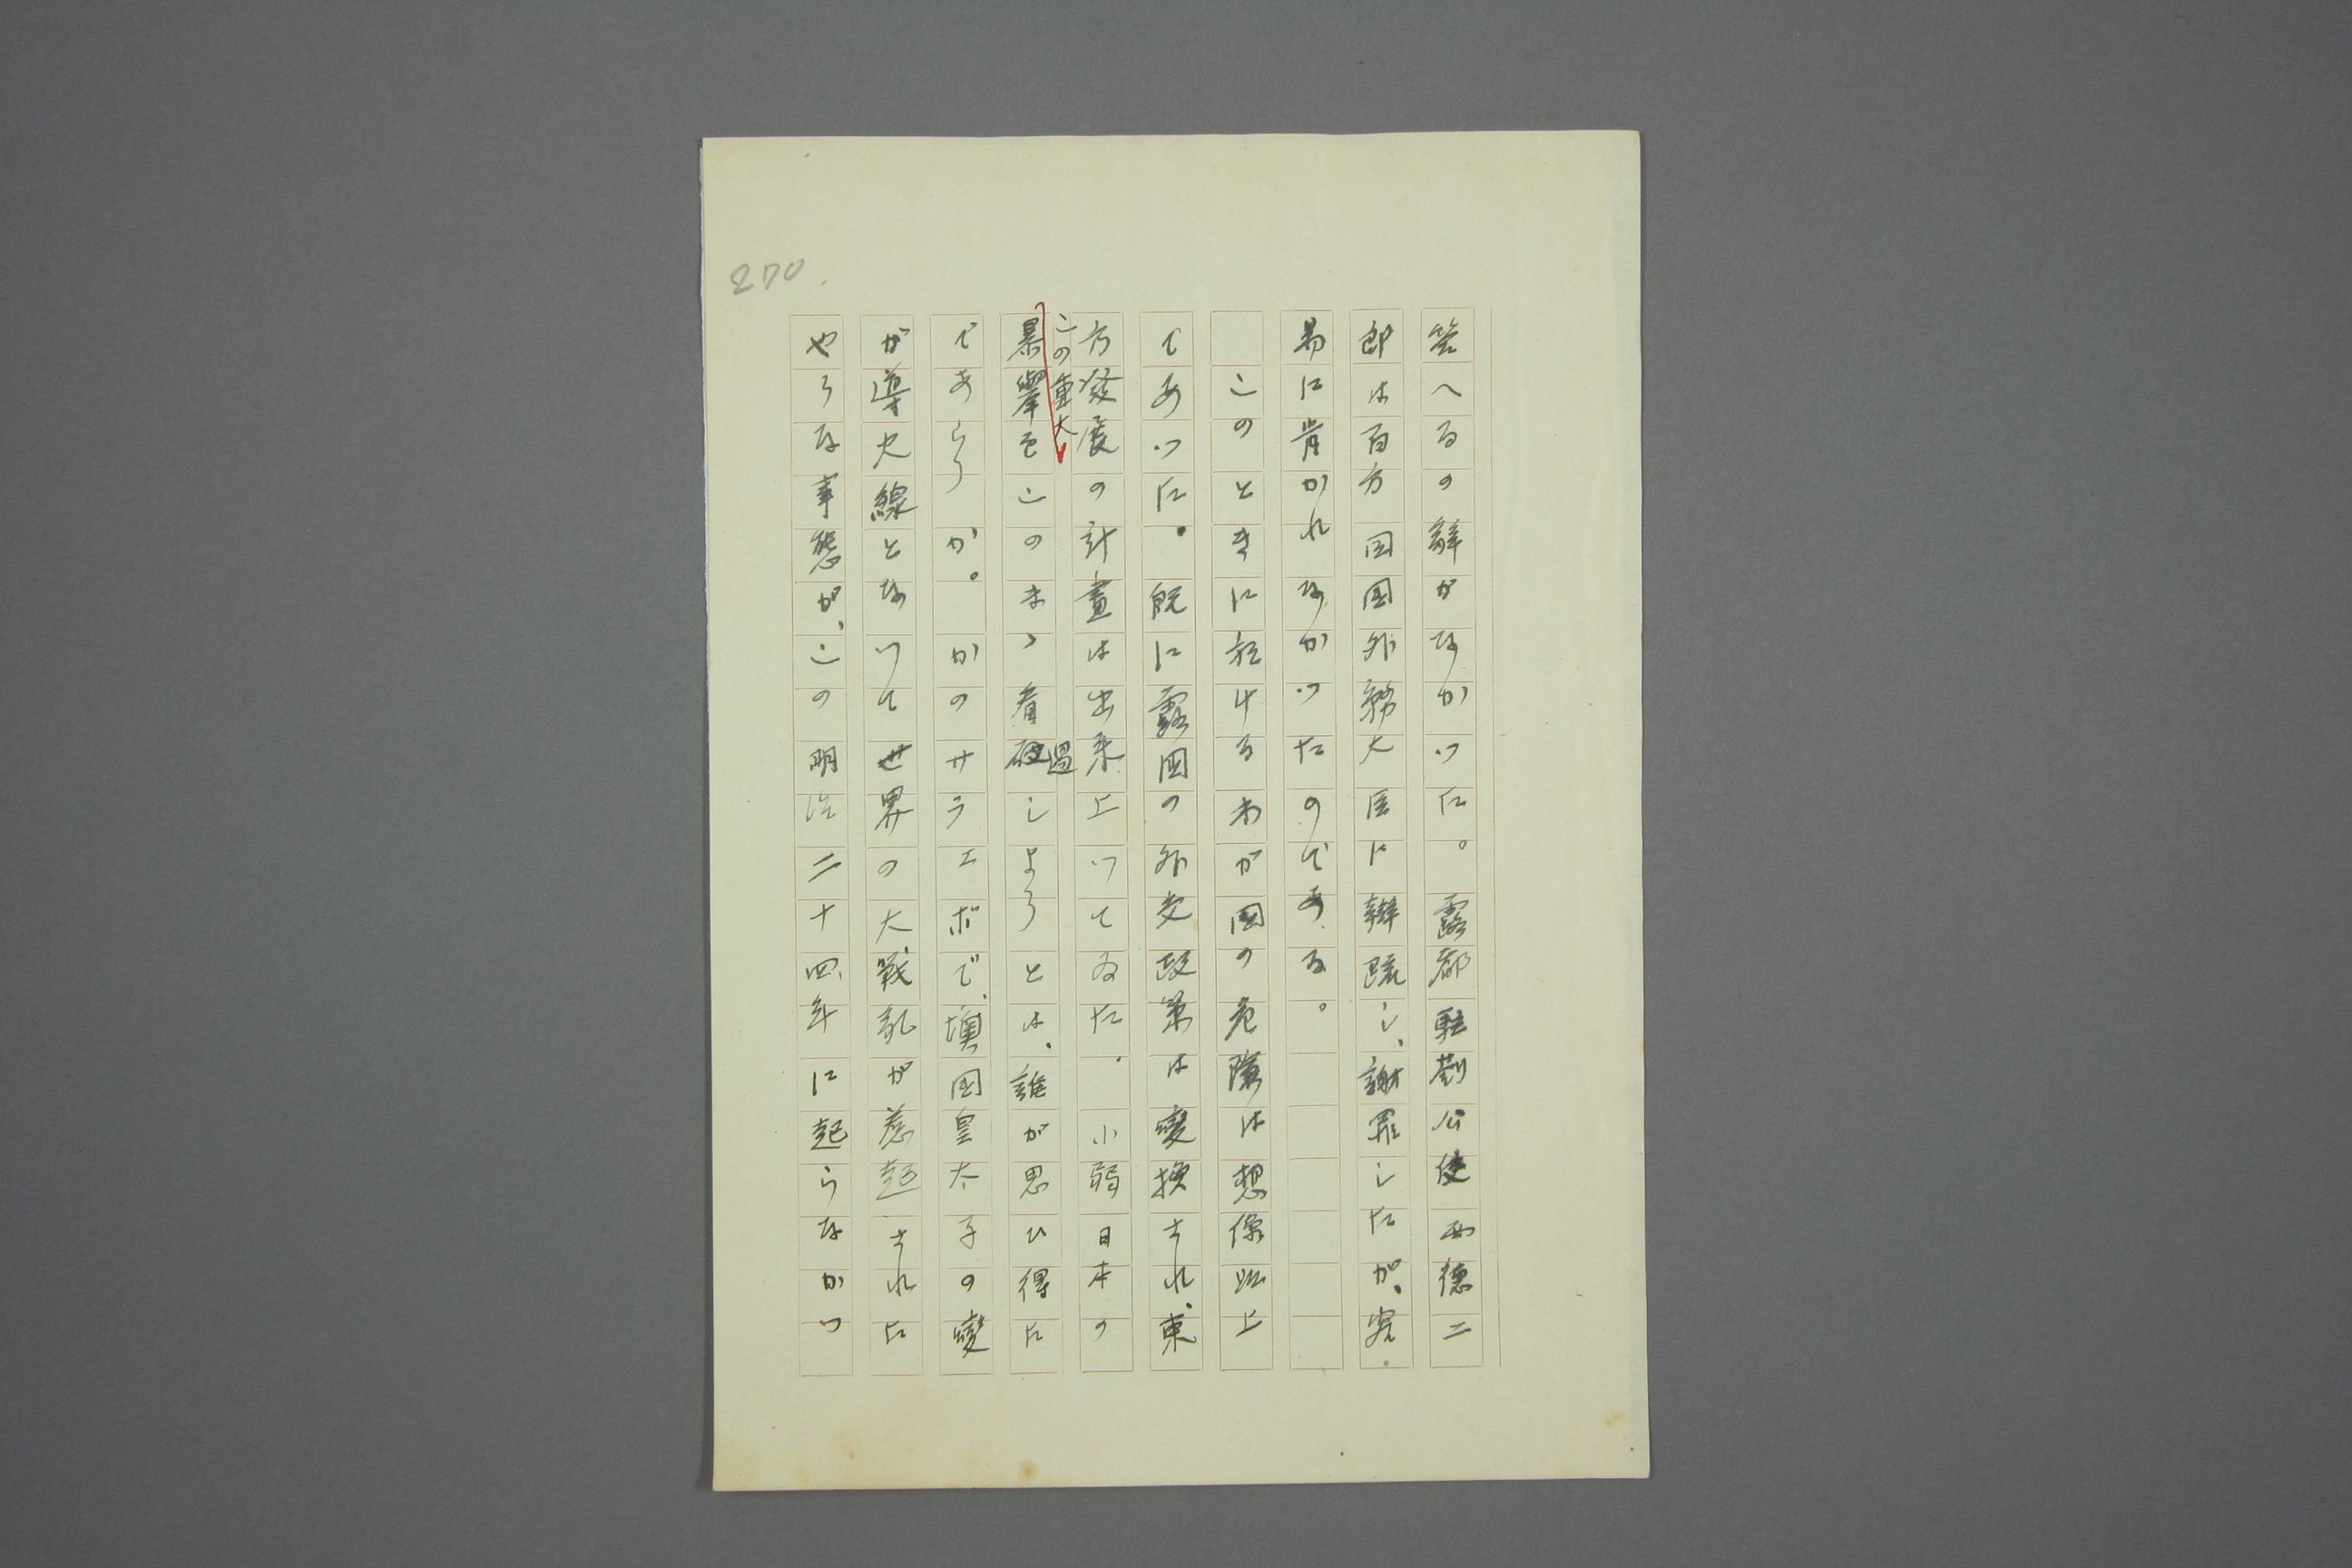 270.
答へるの辭がなかつた。露都駐剳公使西德二
郎は百方囘国外務大臣に辯疏し、謝罪したが、容
易に肯かれなかつたのである。
このときに於けるわが国の危險は想像以上
であつた。既に露国の外交政策は變換され、東
方發展の計畫は出來上つてゐた。小弱日本の
この重大
暴擧をこのまゝ看過しようとは、誰が思ひ得た
であらうか。かのサラエボで、墺国皇太子の變
が導火線となつて世界の大戰乱が惹起された
やうな事態が、この明治二十四年に起らなかつ